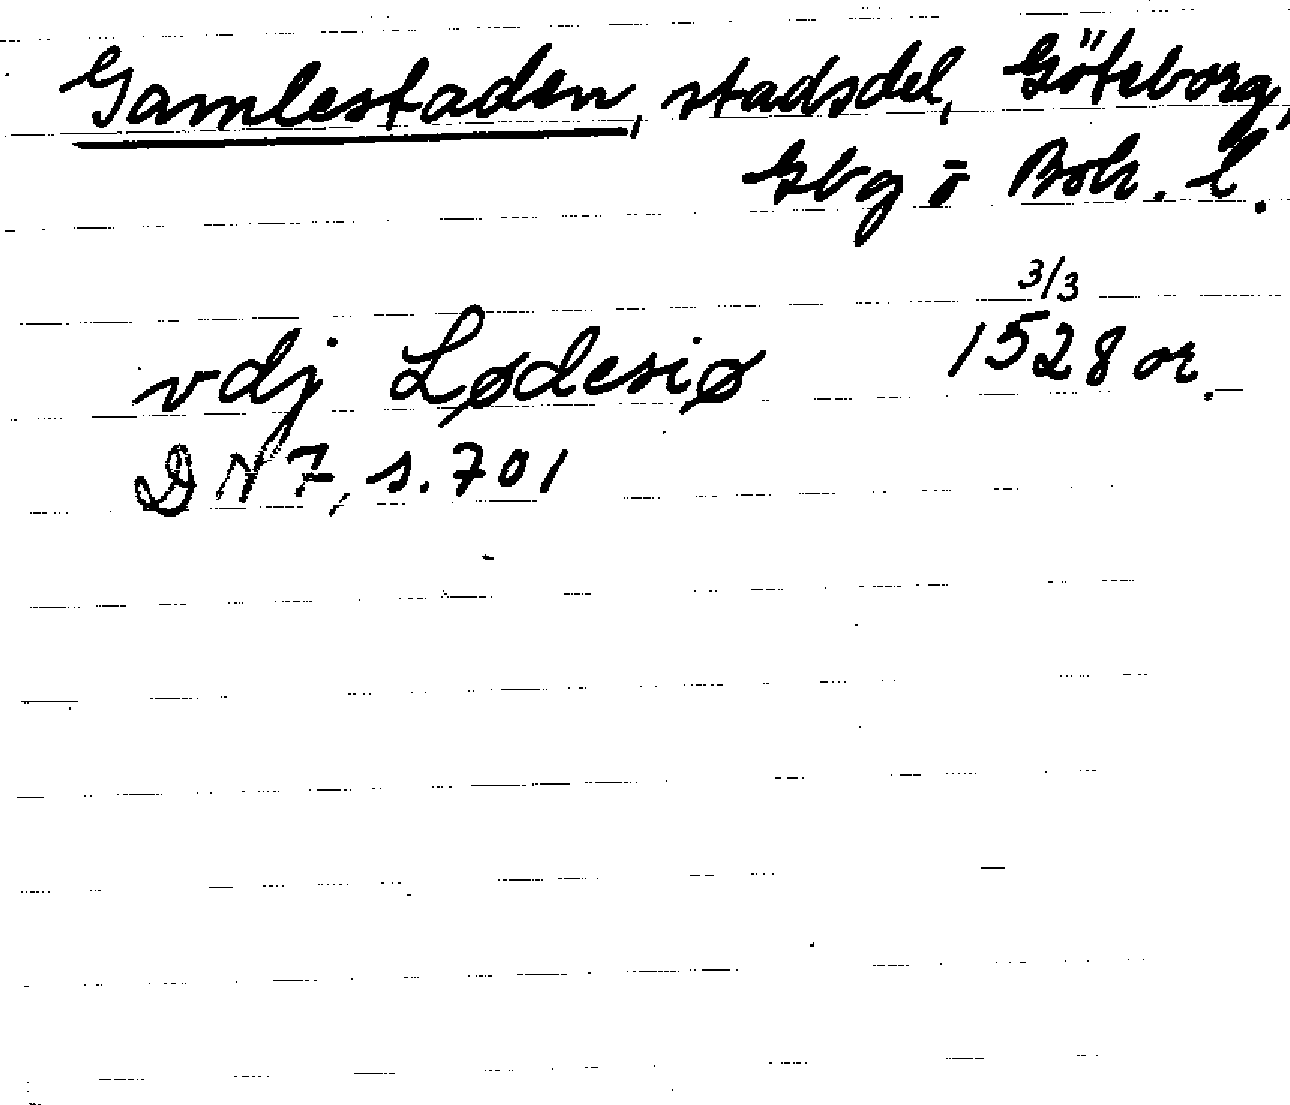 Gamlestaden, stadsdel, Göteborg,
Gbg o Boh. l.
3/3
vdj Lødesiø 1528 or.
DN 7, s. 701